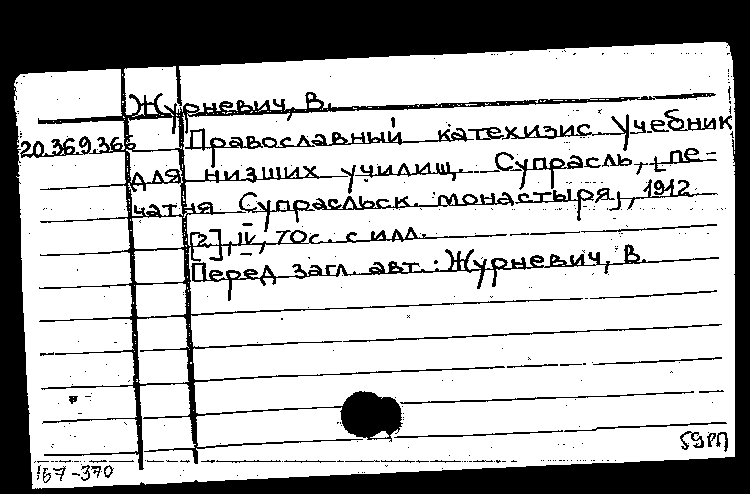 Журневич, В.
20.369.366 Православный катехизис. Учебник
для низших училищ. Супрасль, [пе-
чатня Супрасльск. монастыря], 1912
[2], IV, 70с. с илл.
Перед загл. авт.: Журневич, В.
59РП
167-370